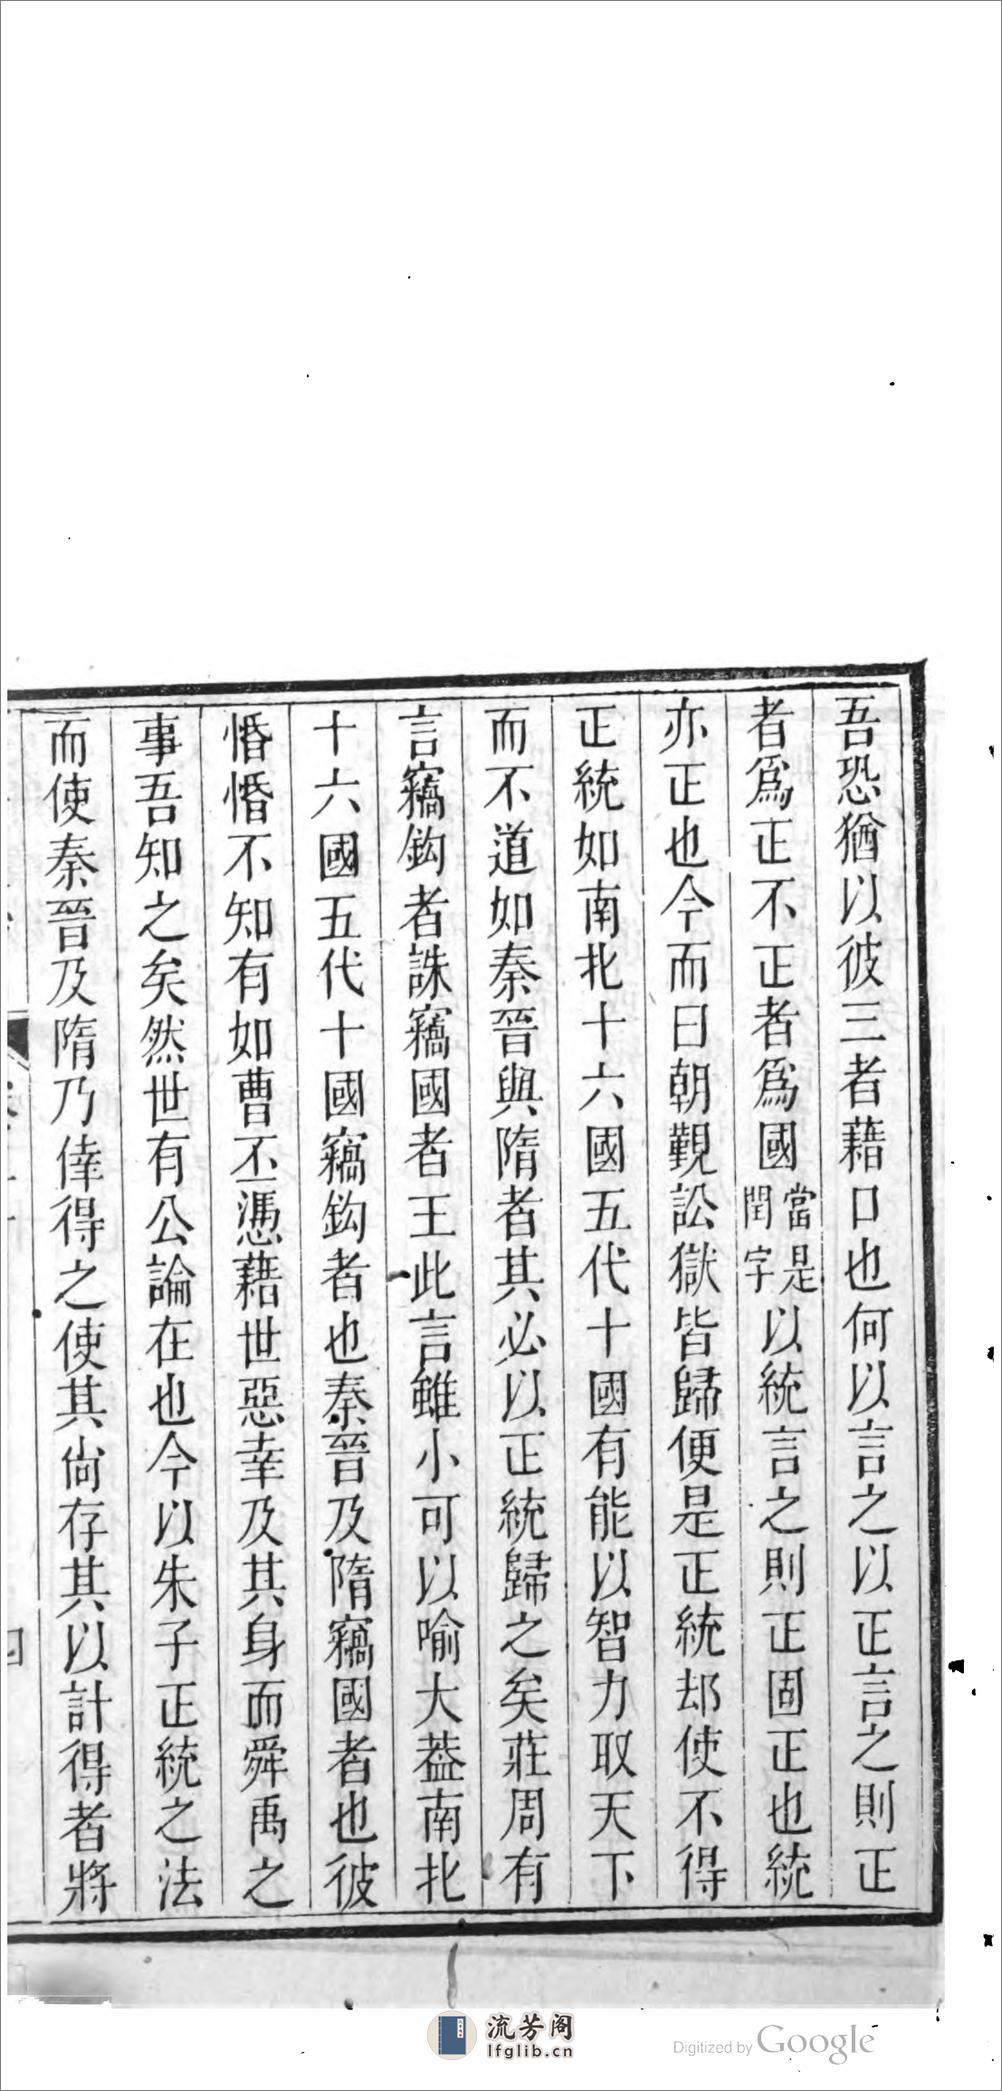 吾恐猶以彼三者藉口也何以言之以正言之則正
者爲正不正者爲國當是閏字以統言之則正固正也統
亦正也今而曰朝覲訟獄皆歸便是正統却使不得
正統如南北十六國五代十國有能以智力取天下
而不道如秦晉與隋者其必以正統歸之矣莊周有
言竊鈎者誅竊國者王此言雖小可以喻大葢南北
十六國五代十國竊鈎者也秦晉及隋竊國者也彼
惛惛不知有如曹丕憑藉世惡幸及其身而舜禹之
事吾知之矣然世有公論在也今以朱子正統之法
而使秦晉及隋乃倖得之使其尙存其以計得者將
流芳阁
lfglib.cn
Digitized by Google